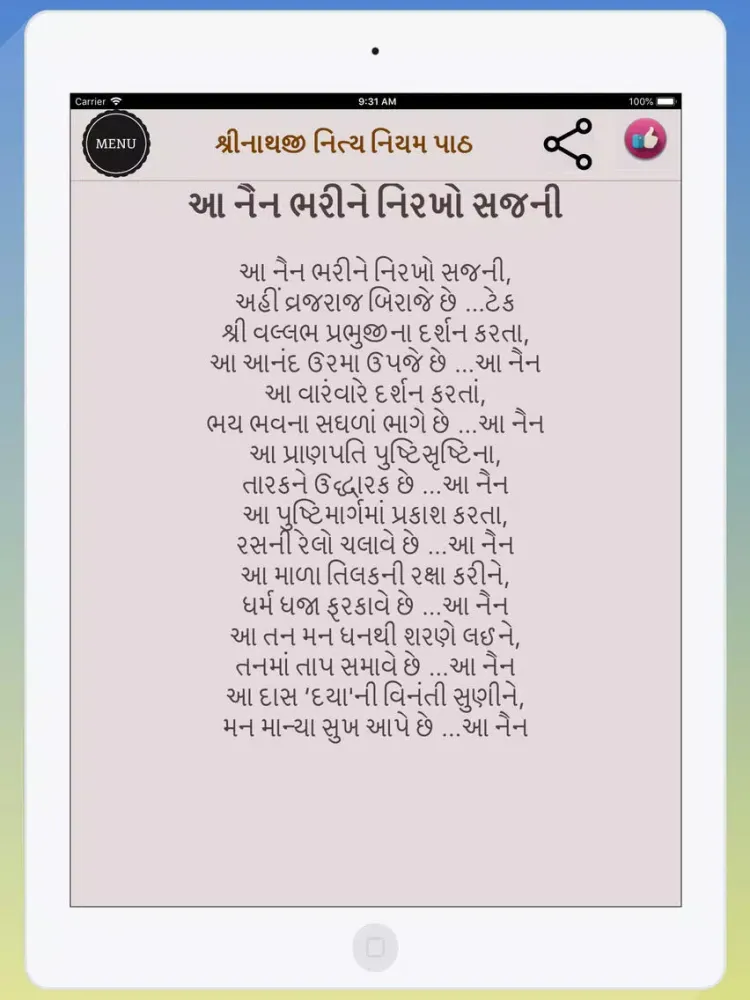 Carrier 9:31 AM 100%
MENU શ્રીનાથજી નિત્ય નિયમ પાઠ
આ નૈન ભરીને નિરખો સજની
આ નૈન ભરીને નિરખો સજની,
અહીં વ્રજરાજ બિરાજે છે ...ટેક
શ્રી વલ્લભ પ્રભુજીના દર્શન કરતા,
આ આનંદ ઉરમા ઉપજે છે ...આ નૈન
આ વારંવારે દર્શન કરતાં,
ભય ભવના સઘળાં ભાગે છે ...આ નૈન
આ પ્રાણપતિ પુષ્ટિસૃષ્ટિના,
તારકને ઉદ્ધારક છે ...આ નૈન
આ પુષ્ટિમાર્ગમાં પ્રકાશ કરતા,
રસની રેલો ચલાવે છે ...આ નૈન
આ માળા તિલકની રક્ષા કરીને,
ધર્મ ધજા ફરકાવે છે ...આ નૈન
આ તન મન ધનથી શરણે લઈને,
તનમાં તાપ સમાવે છે ...આ નૈન
આ દાસ ‘દયા'ની વિનંતી સુણીને,
મન માન્યા સુખ આપે છે ...આ નૈન